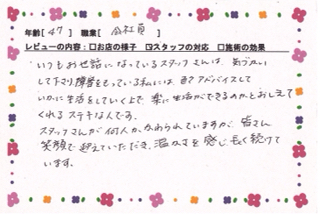 年齢[ 47 ] 職業[ 会社員 ]
レビューの内容:□お店の様子 ☑スタッフの対応 □施術の効果
いつもお世話になっているスタッフさんは、気づかい
して下さり障害をもっている私には、アドバイスして
いかに生活をしていく上で、楽に生活ができるのかとおしえて
くれるステキな人です。
スタッフさんが何人か、かわられていますが、皆さん
笑顔で迎えていただき、温かさを感じ長く続けて
います。